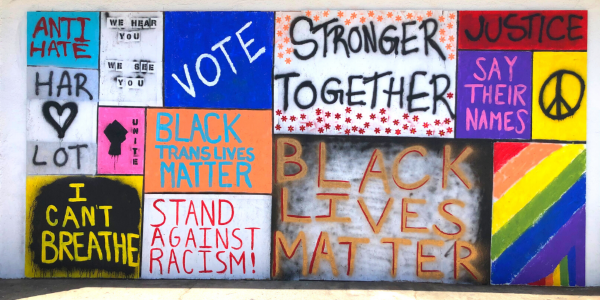 ANTI
HATE
WE HEAR
YOU
WE SEE
YOU
VOTE
STRONGER
TOGETHER
JUSTICE
HAR
LOT
UNITE
BLACK
TRANS LIVES
MATTER
SAY
THEIR
NAMES
I
CAN'T
BREATHE
STAND
AGAINST
RACISM!
BLACK
LIVES
MATTER